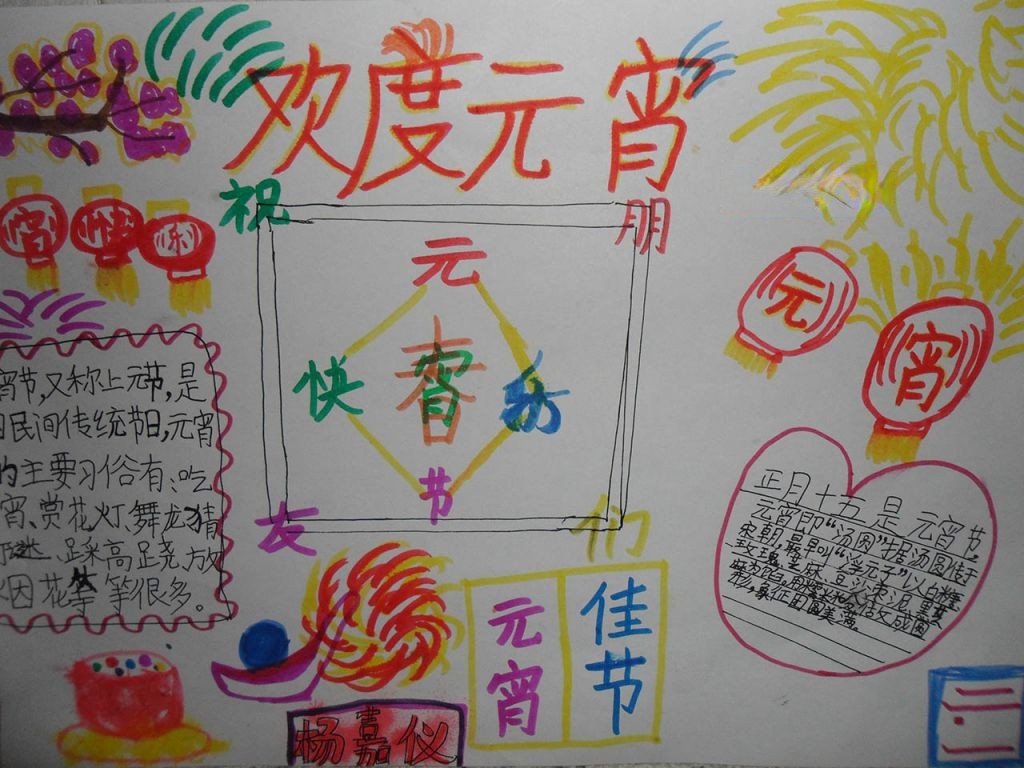 欢度元宵
祝 朋
友 们
元
快 宵 乐
节
宵 快 乐
元
宵
宵节,又称上元节,是
民间传统节日,元宵
的主要习俗有:吃
宵、赏花灯、舞龙、猜
谜、踩高跷、放
烟花等等很多。
正月十五是元宵节
元宵即“汤圆”据汤圆传于
宋朝,最早叫“浮元子”以白糖
玫瑰 芝麻 豆沙 枣泥
团圆美满。
元宵
佳节
杨嘉仪